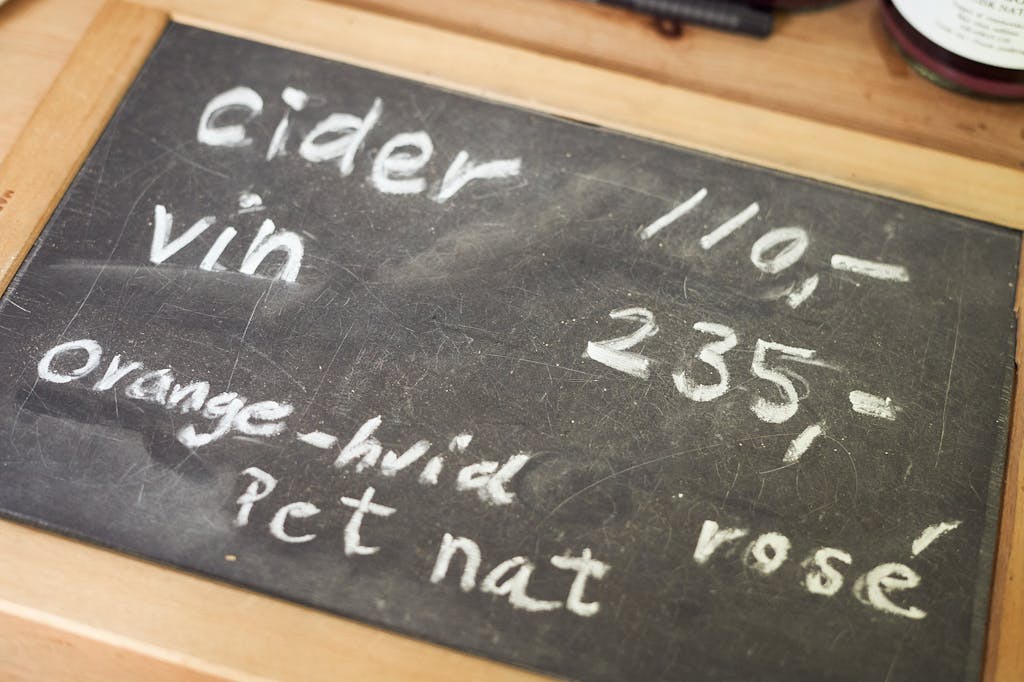 cider 110,-
vin 235,-
orange-hvid rosé
Pet nat